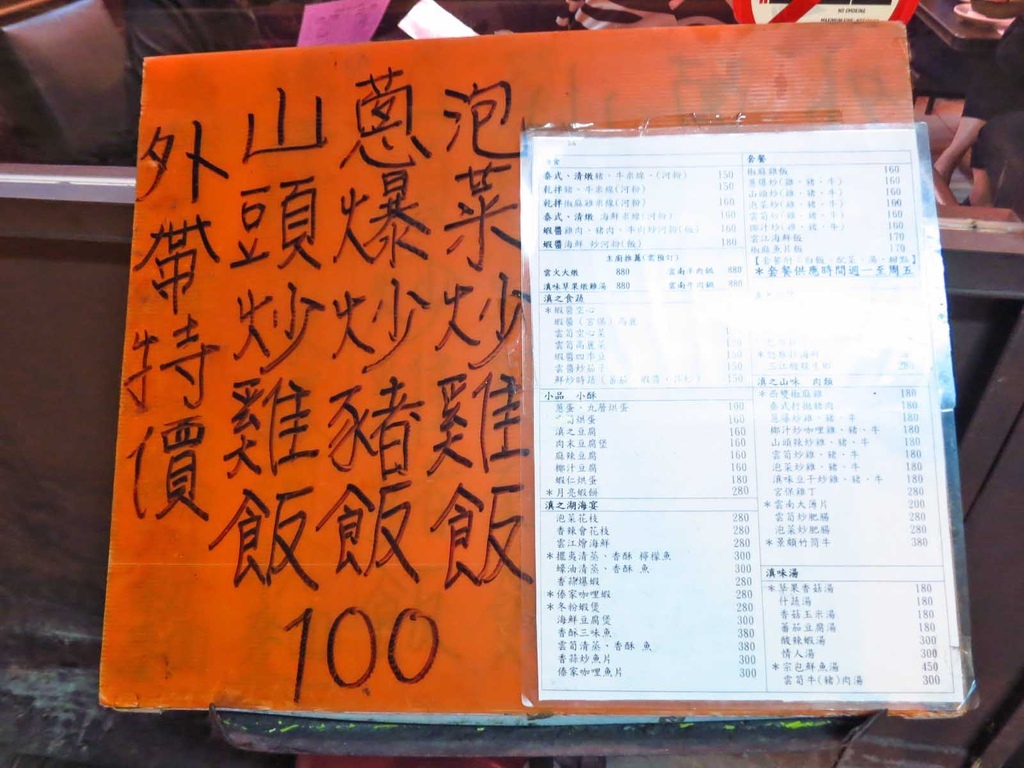 NO SMOKING
泡菜炒雞飯
蔥爆炒豬飯
山頭炒雞飯
外帶特價
100
泰式、清燉豬、牛米線、(河粉) 150
乾拌豬、牛米線(河粉) 150
乾拌椒麻雞米線(河粉) 160
泰式、清燉 海鮮米線(河粉) 160
蝦醬雞肉、豬肉、牛肉炒河粉(飯) 160
蝦醬海鮮 炒河粉(飯) 180
主廚推薦(需預訂)
雲火大燉 880 雲南羊肉鍋 680
滇味草果燉雞湯 880 雲南牛肉鍋 880
滇之食蔬
*蝦醬空心
蝦醬(宮保)高麗
雲筍空心菜
雲筍高麗菜 150
蝦醬四季豆 150
雲醬炒茄子 150
鮮炒時蔬 150
小品 小酥
蔥蛋、九層烘蛋 100
筍烘蛋 160
滇之豆腐 160
肉末豆腐煲 160
麻辣豆腐 160
椰汁豆腐 160
蝦仁烘蛋 180
*月亮蝦餅 280
滇之湖海宴
泡菜花枝 280
香辣會花枝 280
雲江燴海鮮 280
*擺夷清蒸、香酥 檸檬魚 300
蠔油清蒸、香酥 魚 300
香蒜爆蝦 280
*傣家咖哩蝦 280
*冬粉蝦煲 280
海鮮豆腐煲 300
香酥三味魚 380
雲筍清蒸、香酥 魚 380
香蒜炒魚片 300
傣家咖哩魚片 300
套餐
椒麻雞飯 160
蔥爆炒(雞、豬、牛) 160
山頭炒(雞、豬、牛) 160
泡菜炒(雞、豬、牛) 160
雲筍炒(雞、豬、牛) 160
椰汁炒(雞、豬、牛) 160
雲江海鮮飯 170
椒麻魚片飯 170
【套餐附：白飯、配菜、湯、甜點】
*套餐供應時間週一至周五
滇之山味 肉類
*西雙椒麻雞 180
泰式打拋豬肉 180
蔥爆炒雞、豬、牛 180
椰汁炒咖哩雞、豬、牛 180
山頭辣炒雞、豬、牛 180
雲筍炒雞、豬、牛 180
泡菜炒雞、豬、牛 180
滇味豆干炒雞、豬、牛 180
宮保雞丁 280
*雲南大薄片 200
雲筍炒肥腸 280
泡菜炒肥腸 280
*景頗竹筒牛 380
滇味湯
*草果香菇湯 180
什蔬湯 180
香菇玉米湯 180
蕃茄豆腐湯 180
酸辣蝦湯 300
情人湯 300
*宗包鮮魚湯 450
雲筍牛(豬)肉湯 300